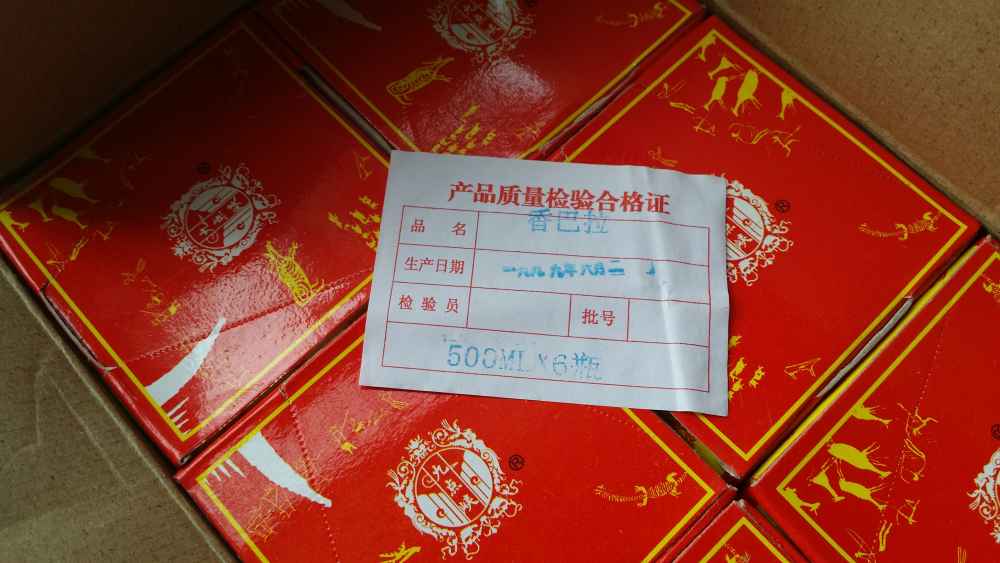 产品质量检验合格证
品名 香巴拉
生产日期 一九九九年八月二
检验员 批号
500ML×6瓶